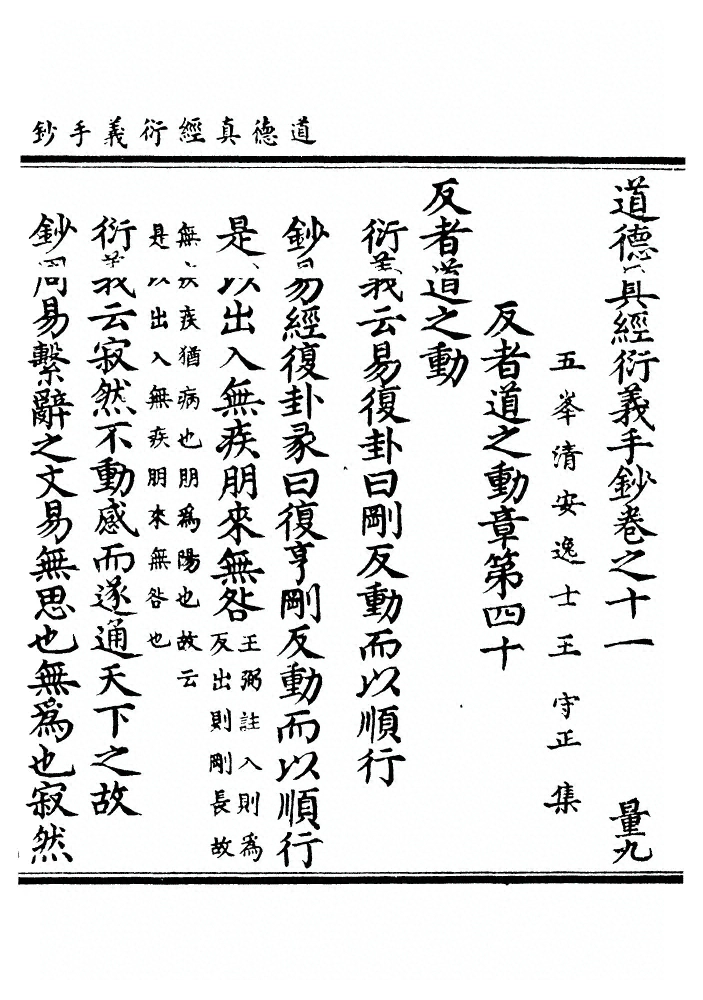 道德真經衍義手鈔
道德真經衍義手鈔卷之十一 量九
五峯清安逸士王守正集
反者道之動章第四十
反者道之動
衍義云易復卦曰剛反動而以順行
鈔曰易經復卦彖曰復亨剛反動而以順行
是以出入無疾朋來無咎
王弼註入則爲
反出則剛長故
無疾疾猶病也朋爲陽也故云
是以出入無疾朋來無咎也
衍義云寂然不動感而遂通天下之故
鈔曰周易繫辭之文易無思也無爲也寂然